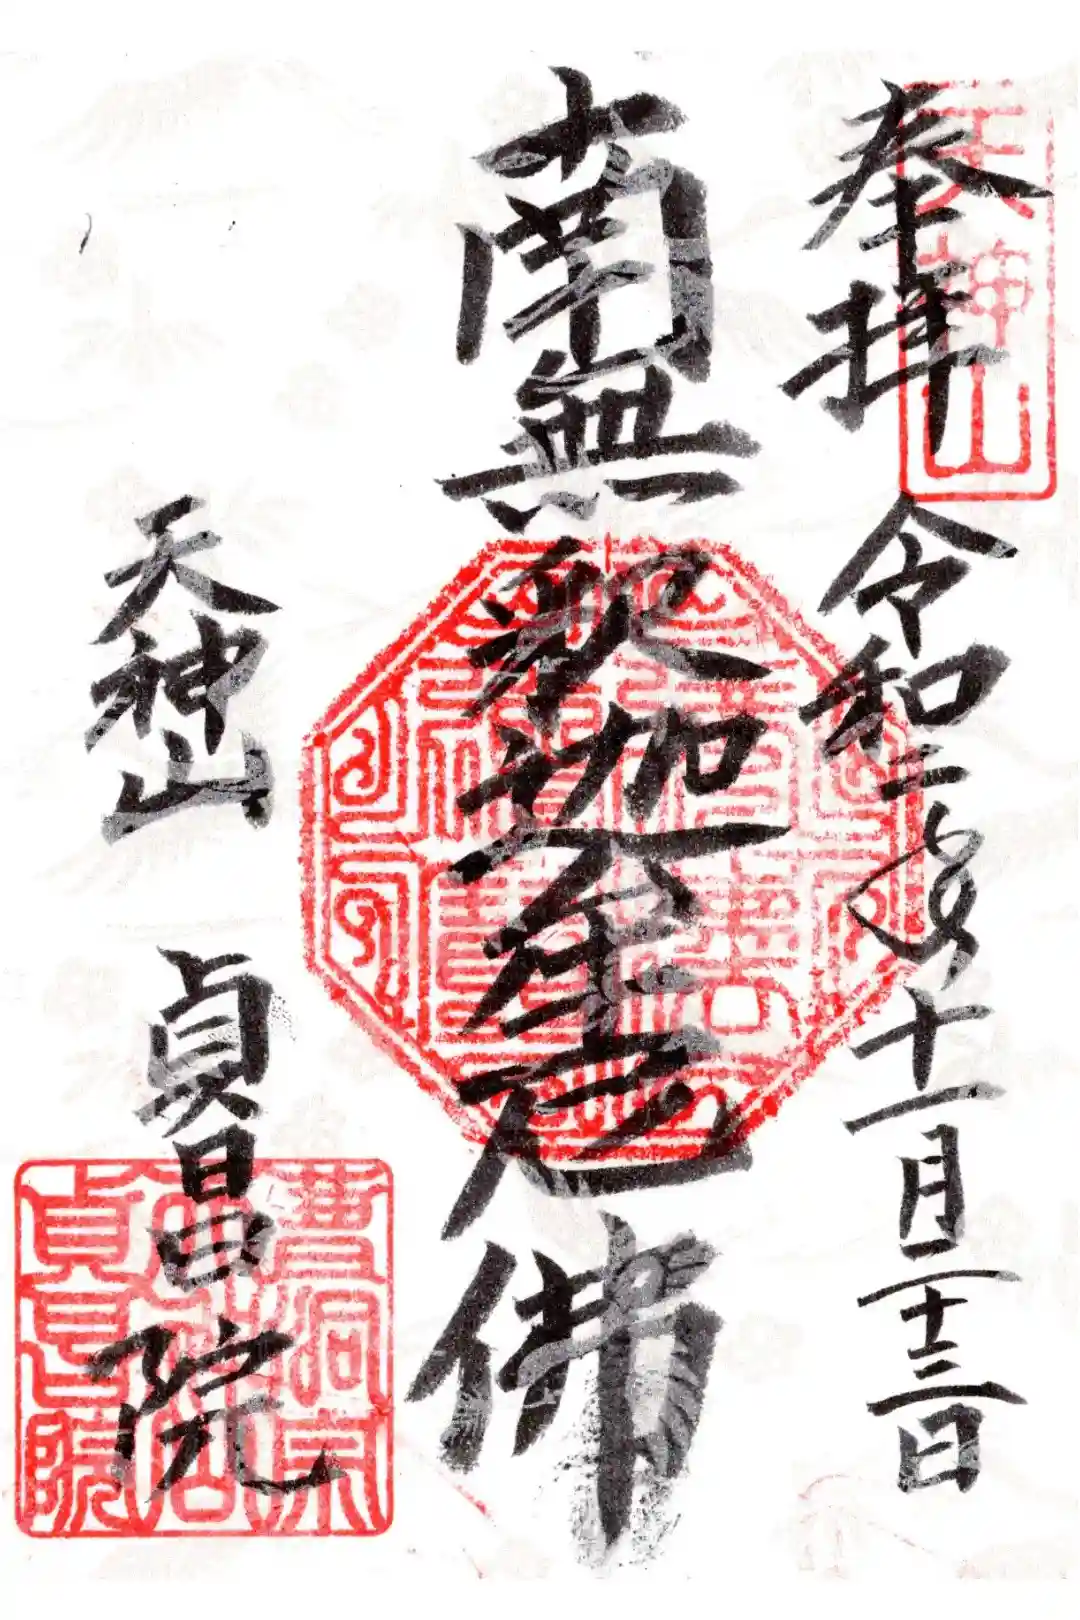 奉拝
令和二年十一月二十三日
南無釈迦牟尼佛
天神山
貞昌院
天神山
曹洞宗
天神山
貞昌院